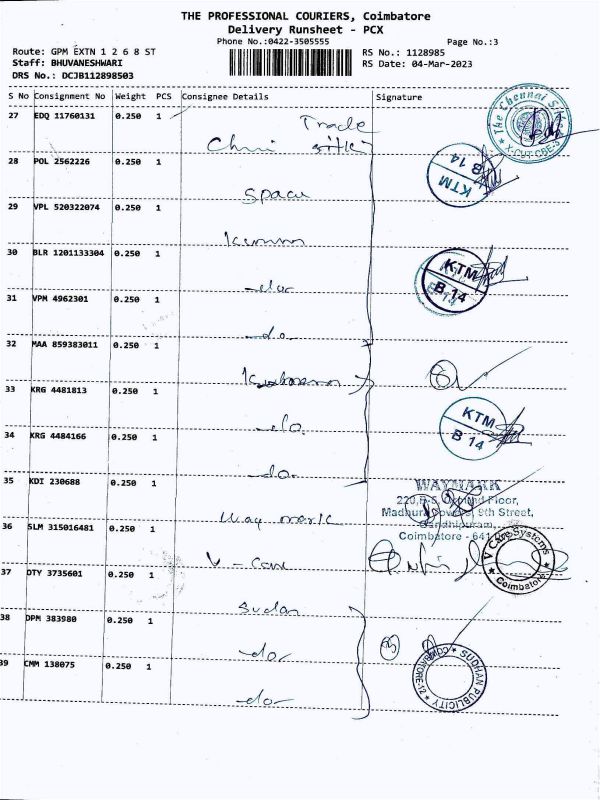 THE PROFESSIONAL COURIERS, Coimbatore
Delivery Runsheet - PCX
Phone No.:0422-3505555
Page No.:3
Route: GPM EXTN 1 2 6 8 ST
RS No.: 1128985
Staff: BHUVANESHWARI
RS Date: 04-Mar-2023
DRS No.: DCJB112898503
S No Consignment No Weight PCS Consignee Details Signature
27 EDQ 11760131 0.250 1
Trade
The Chennai Silks
X-CUT, CBE-
28 POL 2562226 0.250 1
Space
KTM
B 14
29 VPL 520322074 0.250 1
30 BLR 1201133304 0.250 1
-do-
KTM
B 14
31 VPM 4962301 0.250 1
-do-
32 MAA 859383011 0.250 1
33 KRG 4481813 0.250 1
-do-
KTM
B 14
34 KRG 4484166 0.250 1
-do-
35 KDI 230688 0.250 1
Way mark
WAYMARK
220, Floor,
Towers, 9th Street,
Gandhipuram,
Coimbatore - 641
36 SLM 315016481 0.250 1
V - Care
V Care Systems
Coimbatore
37 DTY 3735601 0.250 1
Sudan
38 DPM 383980 0.250 1
-do-
39 CMM 138075 0.250 1
-do-
SUDHAN PUBLICITY